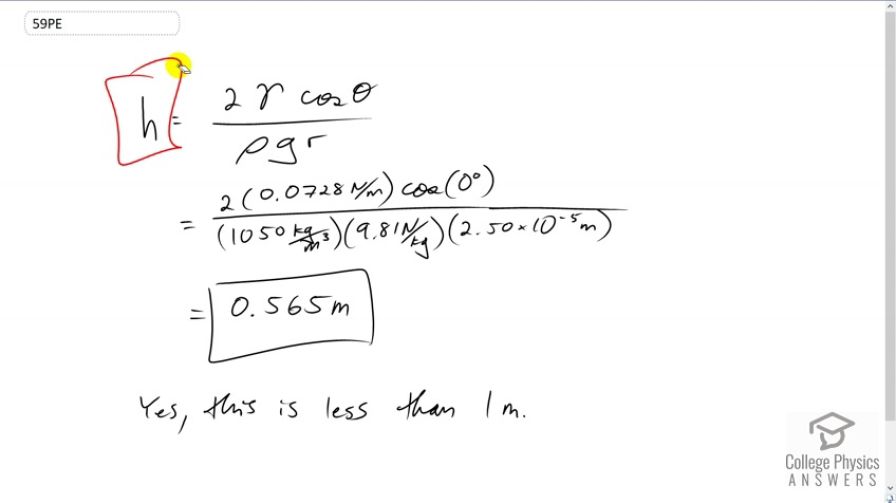 59PE
h = 2 γ cosθ / ρ g r
= 2 (0.0728 N/m) cos(0°) / (1050 kg/m³)(9.81 N/kg)(2.50 × 10⁻⁵ m)
= 0.565 m
Yes, this is less than 1 m.
College Physics
ANSWERS